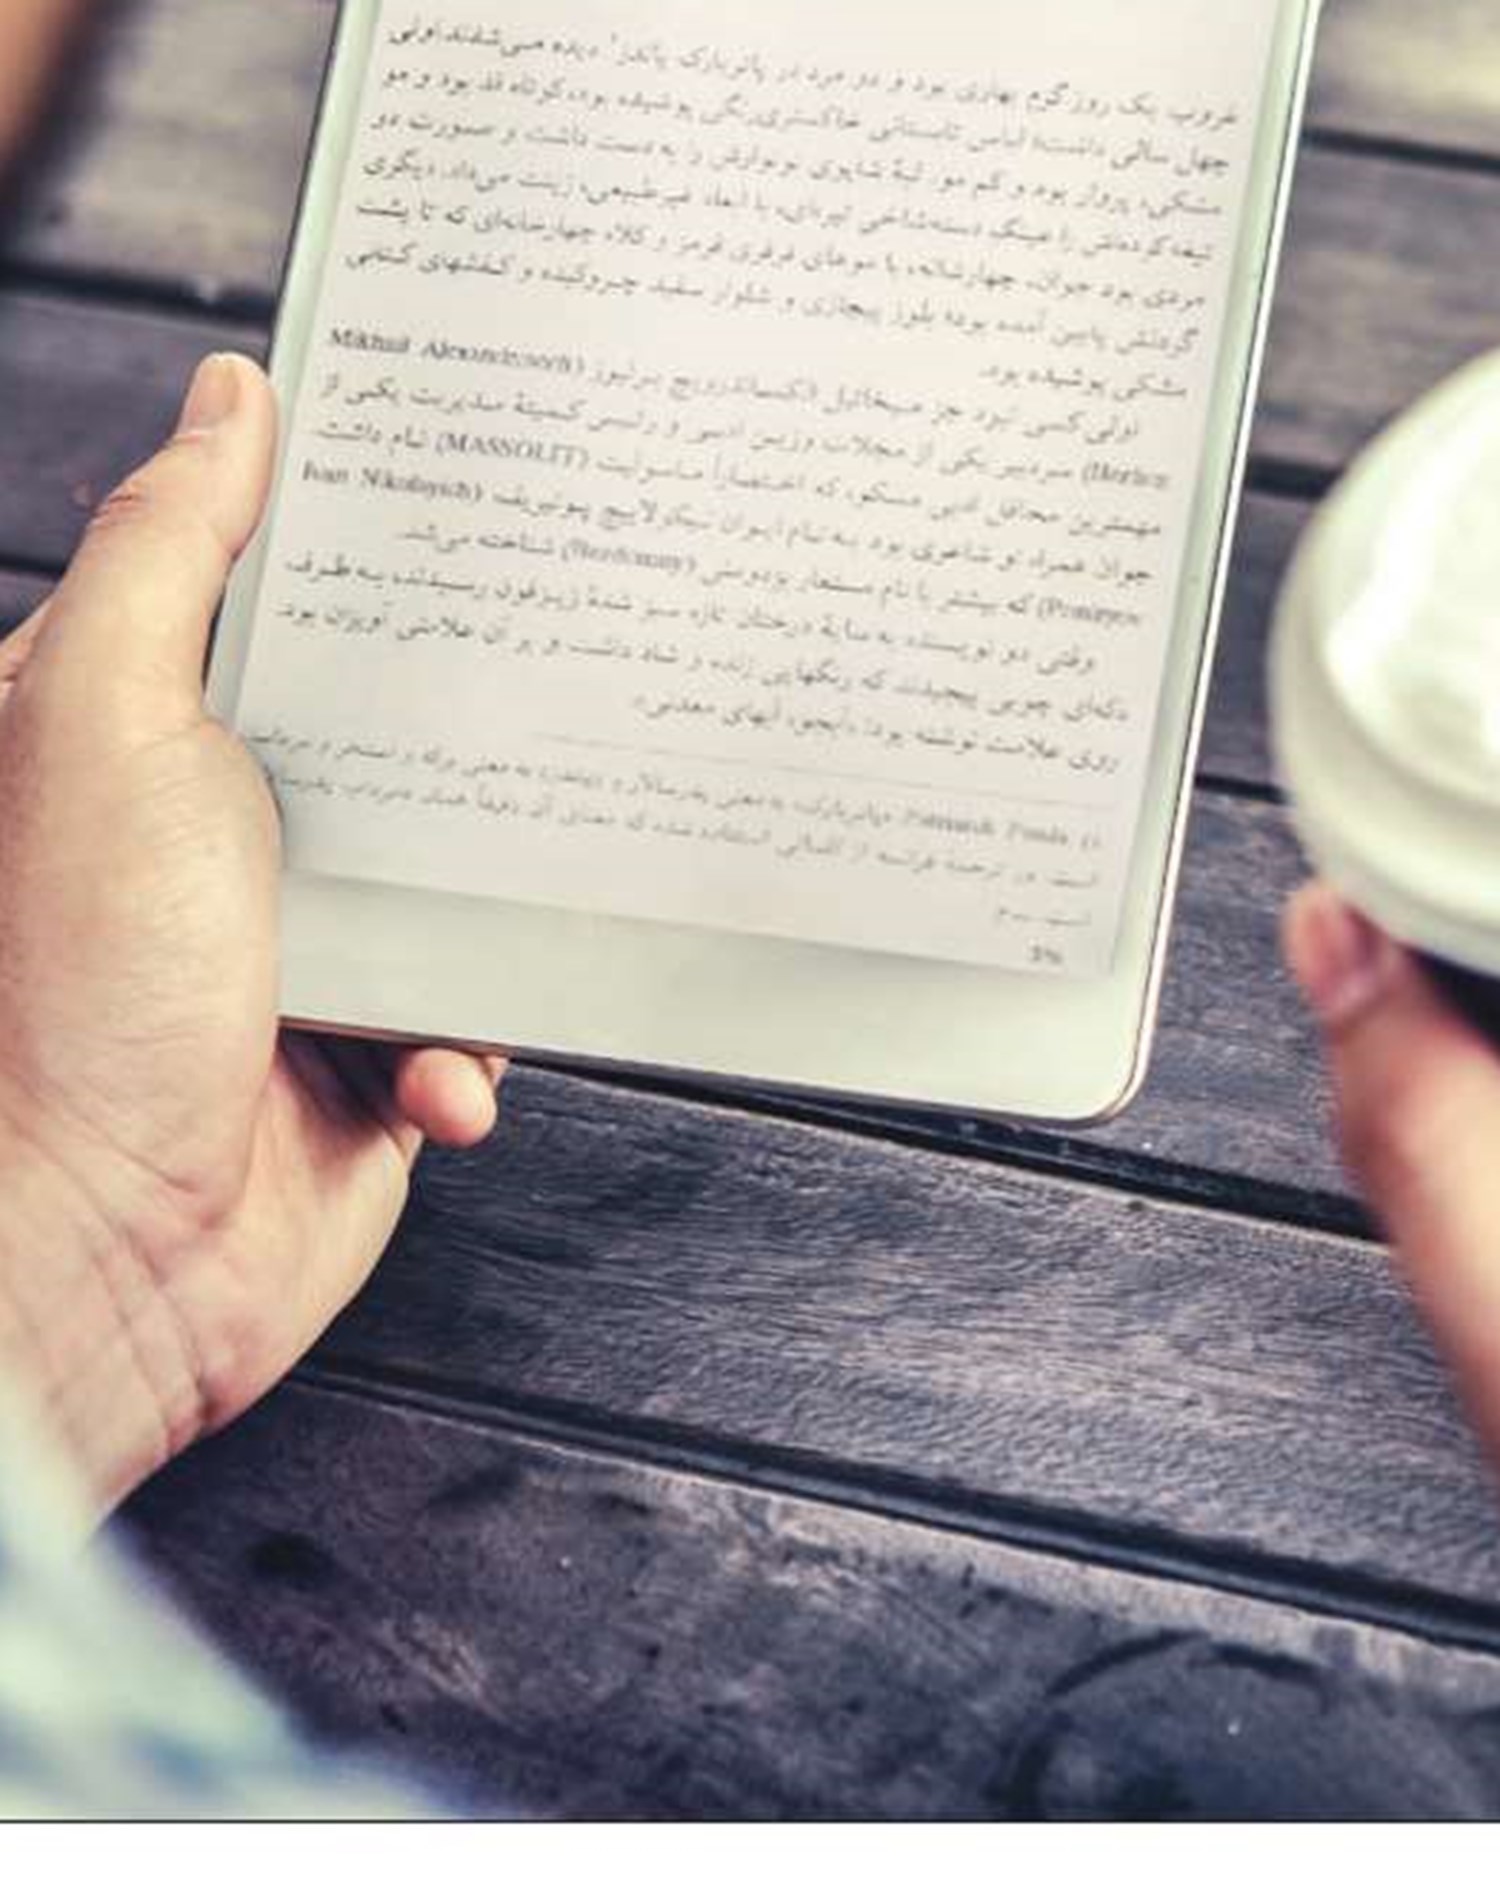 غروب یک روز گرم بهاری بود و دو مرد در پاتریارک پاندز۱ دیده می‌شدند. اولی
چهل سالی داشت؛ لباس تابستانی خاکستری‌رنگی پوشیده بود، کوتاه قد بود و مو
مشکی، پروار بود و کم مو. لبهٔ شاپوی نونوارش را به دست داشت و صورت دو
تیغه کرده‌اش را عینک دسته‌شاخی تیره‌ای، با ابعاد غیرطبیعی، زینت می‌داد. دیگری
مردی بود جوان، چهارشانه، با موهای فرفری قرمز و کلاه چهارخانه‌ای که تا پشت
گردنش پایین آمده بود؛ بلوز پیچازی و شلوار سفید چروکیده و کفشهای کتانی
مشکی پوشیده بود.
اولی کسی نبود جز میخائیل الکساندرویچ برلیوز (Mikhail Alexandrovich
Berlioz) سردبیر یکی از مجلات وزین ادبی و رئیس کمیتهٔ مدیریت یکی از
مهمترین محافل ادبی مسکو، که اختصاراً ماسولیت (MASSOLIT) نام داشت
جوان همراه او شاعری بود به نام ایوان نیکولاییچ پونیریف (Ivan Nikolayich
Poniryov) که بیشتر با نام مستعار بزدومنی (Bezdomny) شناخته می‌شد.
وقتی دو نویسنده به سایهٔ درختان تازه سبز شدهٔ زیزفون رسیدند، به طرف
دکه‌ای چوبی پیچیدند که رنگهایی زنده و شاد داشت و بر آن علامتی آویزان بود.
روی علامت نوشته بود: «آبجو، آبهای معدنی»
۱) Patriarch Ponds «پاتریارک» به معنی پدرسالار و «پاندز» به معنی برکه و استخر و مرداب
است. در ترجمه فرانسه از کلماتی استفاده شده که معنای آن دقیقاً همان
است. — م